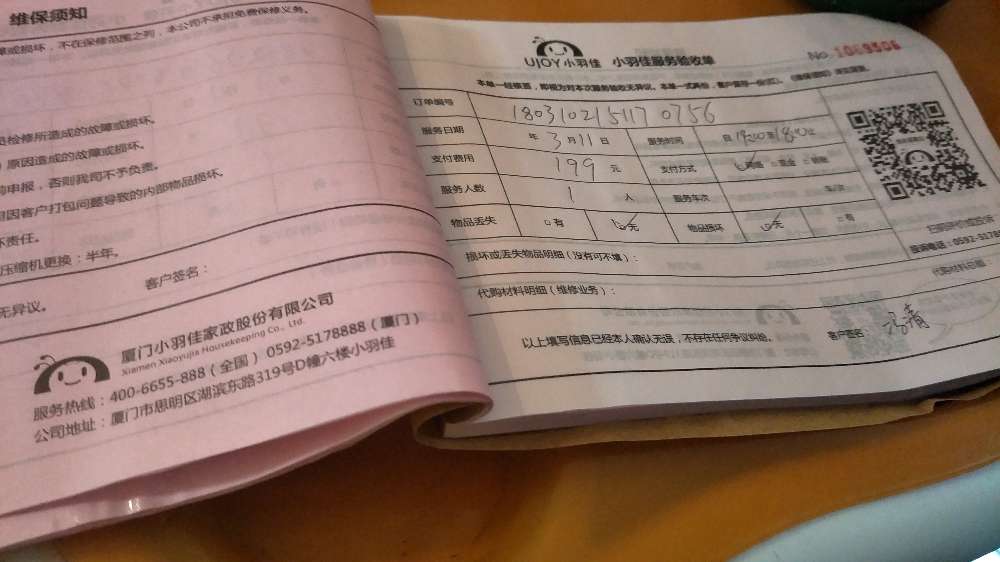 维保须知
障或损坏，不在保修范围之列，本公司不承担免费保修义务。
员检修所造成的故障或损坏。
）原因造成的故障或损坏。
时申报，否则我司不予负责。
但因客户打包问题导致的内部物品损坏。
坏责任。
压缩机更换：半年。
无异议。
客户签名：
厦门小羽佳家政股份有限公司
Xiamen Xiaoyujia Housekeeping Co., Ltd.
服务热线：400-6655-888（全国）0592-5178888（厦门）
公司地址：厦门市思明区湖滨东路319号D幢六楼小羽佳
UJOY 小羽佳 小羽佳服务验收单
No 1069506
本单一经核签，即视为对本次服务验收无异议。本单一式两份，客户留存一份(红)。《维保须知》详见背面。
订单编号 1803102151170756
服务日期 年 3 月 11 日 服务时间 自 至 止
支付费用 199 元 支付方式 现金
服务人数 1 人 服务车次 车/次
物品丢失 有 无 物品损坏 无 有
损坏或丢失物品明细（没有可不填）：
代购材料明细（维修业务）：
代购材料总额：
以上填写信息已经本人确认无误，不存在任何争议纠纷。
客户签名 冯青
咨询电话：0592-5178